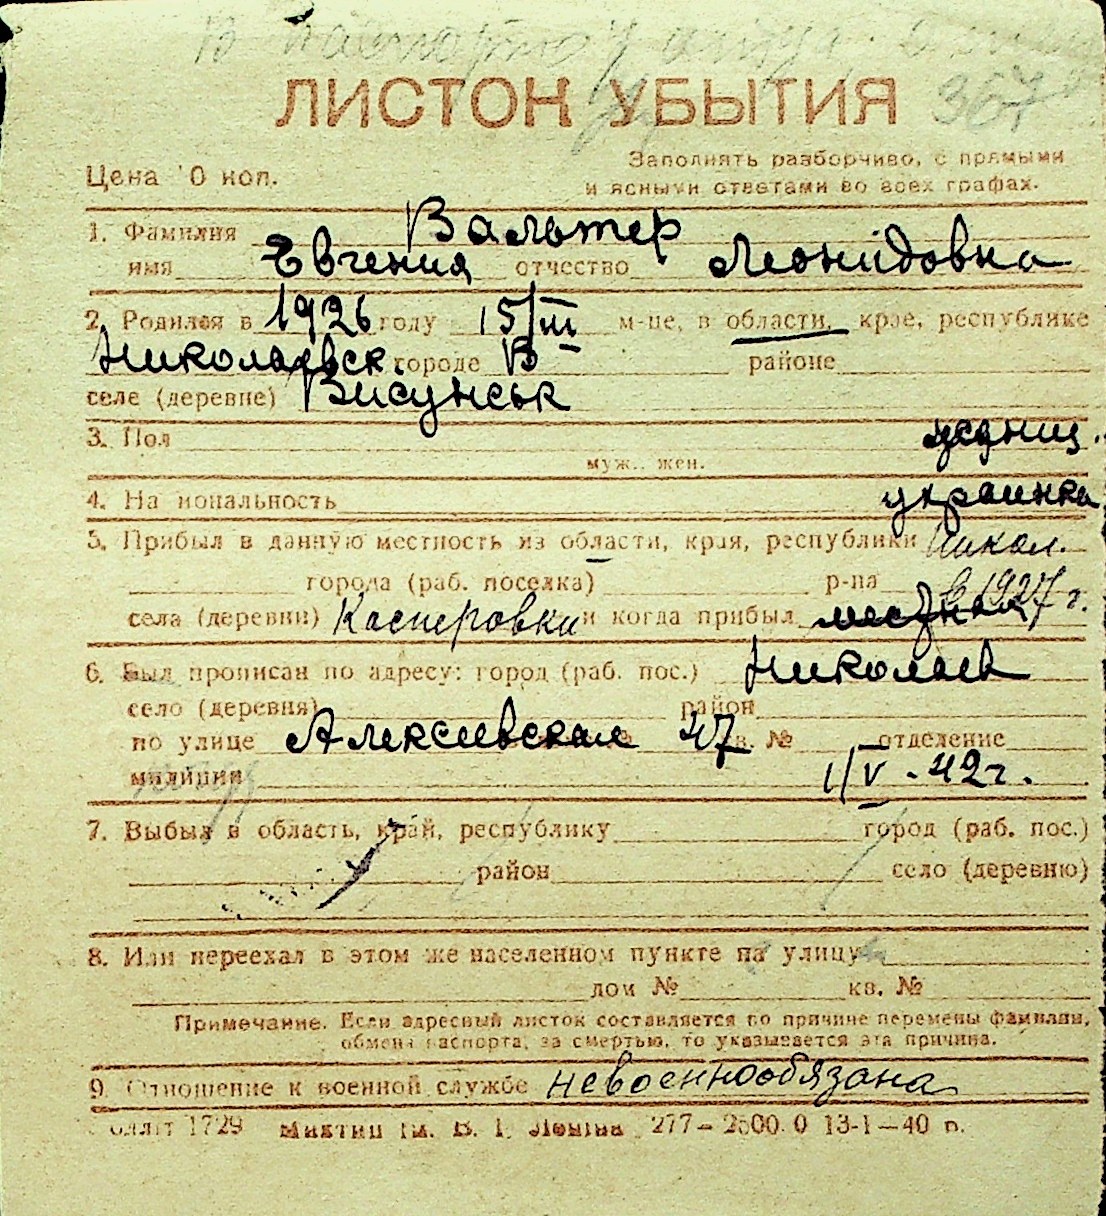 В паспорте
ЛИСТОК УБЫТИЯ 367
Заполнять разборчиво, с прямыми
Цена 10 коп. и ясными ответами во всех графах.
1. Фамилия Вальтер
имя Евгения отчество Леонідовна
2. Родился в 1926 году 15/III м-це, в области, крае, республике
Николаевск. городе В районе
селе (деревне) Висунськ
3. Пол
муж., жен.
4. Национальность украинка
5. Прибыл в данную местность из области, края, республики Никол.
города (раб. поселка) р-на в 1927 г.
села (деревни) Касперовки и когда прибыл местная
6. Был прописан по адресу: город (раб. пос.) Николаев
село (деревня) район
по улице Алексеевская 47 кв. № отделение
милиции 1/V-42г.
7. Выбыл в область, край, республику город (раб. пос.)
район село (деревню)
8. Или переехал в этом же населенном пункте на улицу
дом № кв. №
Примечание. Если адресный листок составляется по причине перемены фамилии,
обмена паспорта, за смертью, то указывается эта причина.
9. Отношение к военной службе невоеннообязана
1729 им. В. І. Леніна 277—2500.0 13-I—40 п.